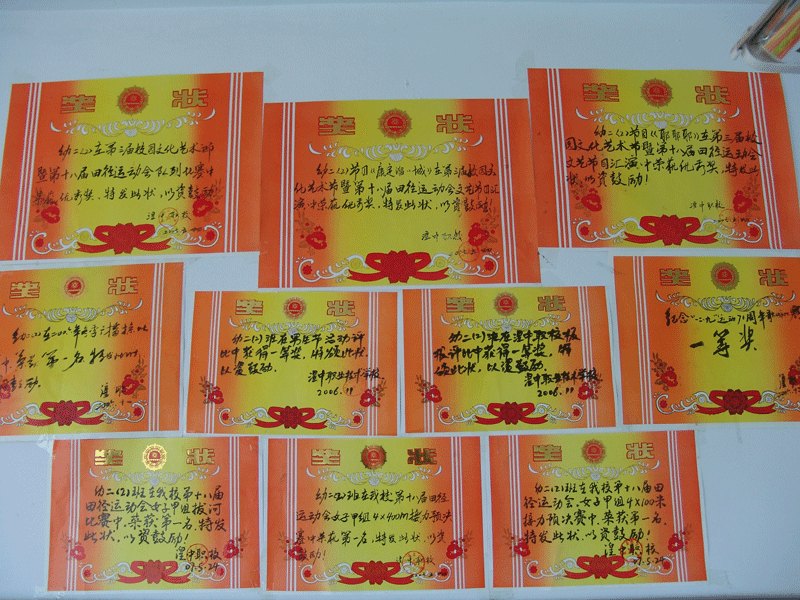 奖 状
幼二(2)在第三届校园文化艺术节
暨第十八届田径运动会队列比赛中
荣获优秀奖,特发此状,以资鼓励!
湟中职校
奖 状
在第三届校园文
化艺术节暨第十八届田径运动会文艺节目汇
演中荣获优秀奖,特发此状,以资鼓励!
湟中职校
奖 状
幼二(2)节目《耶耶耶》在第三届校
园文化艺术节暨第十八届田径运动会
文艺节目汇演中荣获优秀奖,特发此
状,以资鼓励!
湟中职校
奖 状
第一名
奖 状
幼二(2)班在男生节活动评
比中获得一等奖,特颁此状,
以资鼓励。
湟中职业技术学校
2006.11
奖 状
幼二(2)班在湟中职校板
报评比中获得一等奖,特
颁此状,以资鼓励。
湟中职业技术学校
2006.11
奖 状
纪念"一二·九"运动71周年
一等奖
奖 状
幼二(2)班在我校第十八届田
田径运动会女子甲组拔河
比赛中,荣获第一名,特发
此状,以资鼓励!
湟中职校
07.5.24
奖 状
幼二(2)班在我校第十八届田径
运动会女子甲组4×400m接力预决
赛中荣获第一名,特发此状,以资
鼓励!
湟中职校
奖 状
幼二(2)班在我校第十八届田
径运动会,女子甲组4×100米
接力预决赛中,荣获第一名,
特发此状,以资鼓励!
湟中职校
07.5.24